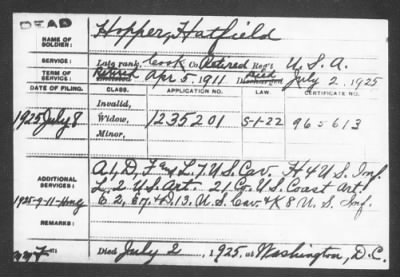 DEAD
NAME OF SOLDIER: Hopper, Hatfield
SERVICE: Late rank, Cook Co. Retired Reg't U. S. A.
TERM OF SERVICE: Retired Enlisted Apr 5, 1911 Died Discharged July 2, 1925
DATE OF FILING. CLASS. APPLICATION NO. LAW. CERTIFICATE NO.
Invalid,
1925 July 8 Widow, 1235201 5-1-22 965613
Minor,
ADDITIONAL SERVICES: A, D, F and L. 7 U.S. Cav. H 4 U. S. Inf.
L. 2 U.S. Art. 21 Co. U.S. Coast Art.
1925-9-11-Hmg 6 2, E 7, + D. 13. U. S. Cav. + K 8 U. S. Inf.
REMARKS:
Died July 2, 1925, at Washington, D.C.